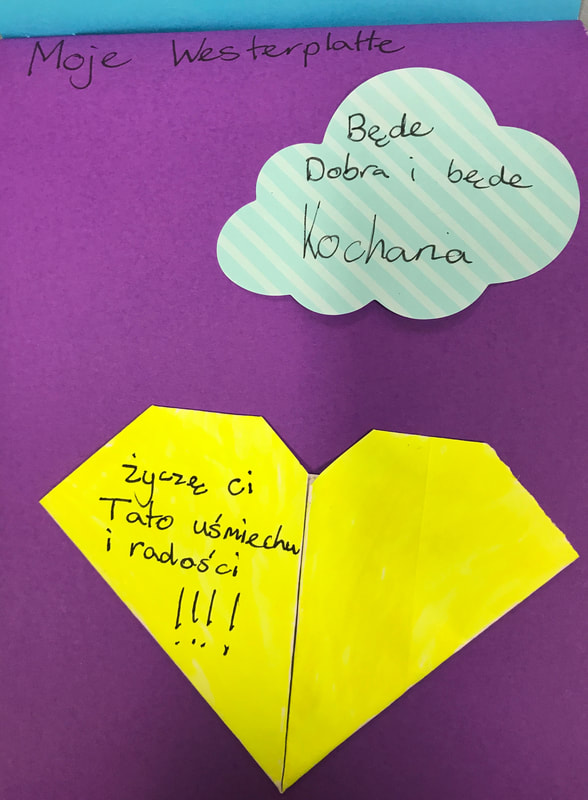 Moje Westerplatte
Będe
Dobra i będe
Kochana
życzę ci
Tato uśmiechu
i radości
!!!!